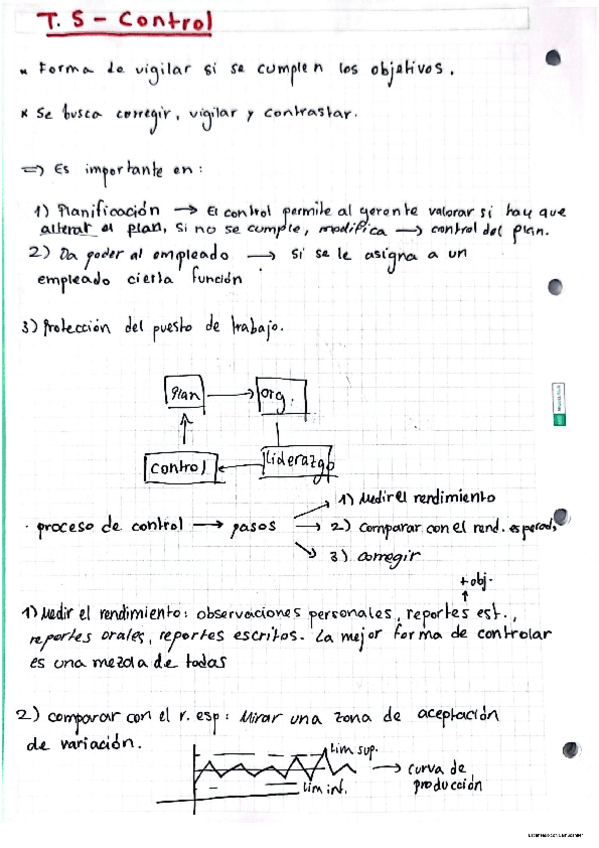 T.5 - Control
* Forma de vigilar si se cumplen los objetivos.
* Se busca corregir, vigilar y contrastar.
=> Es importante en:
1) Planificación → El control permite al gerente valorar si hay que
alterar el plan, si no se cumple, modifica → control del plan.
2) Da poder al empleado → si se le asigna a un
empleado cierta función
3) Protección del puesto de trabajo.
Plan → org.
control ← Liderazgo
· proceso de control → pasos
1) Medir el rendimiento
→ 2) comparar con el rend. esperado,
3) corregir
+ obj.
1) Medir el rendimiento: observaciones personales, reportes est.,
reportes orales, reportes escritos. La mejor forma de controlar
es una mezcla de todas
2) comparar con el r. esp: Mirar una zona de aceptación
de variación.
Lim sup.
→ curva de
producción
Lim inf.